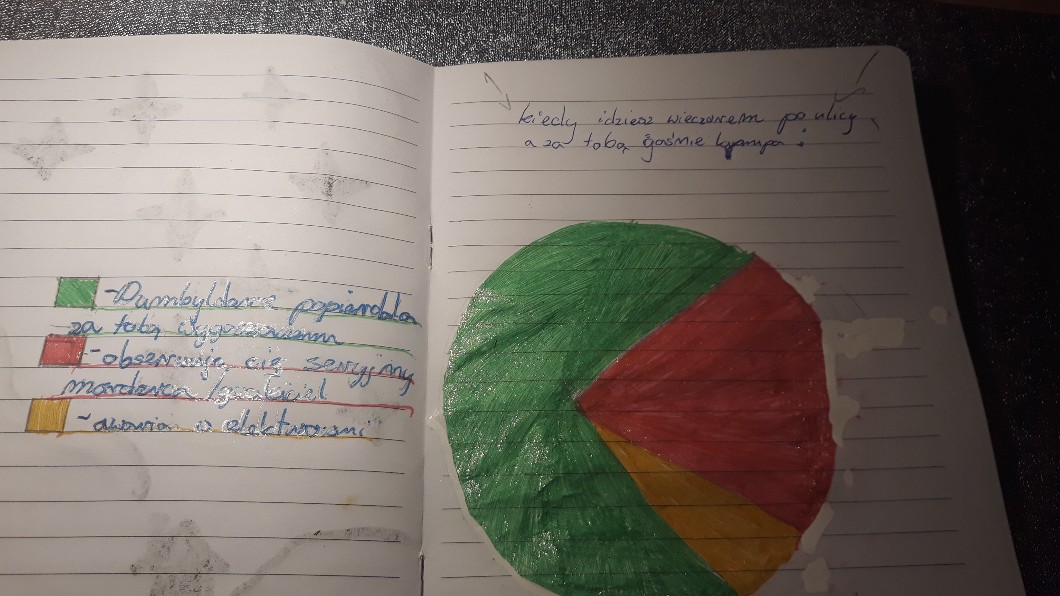 kiedy idziesz wieczorem po ulicy
a za tobą gaśnie lampa:
-Dumbyldore popierdala
za tobą wygaszaczem
-obserwuje cię seryjny
morderca /gwałciciel
-awaria w elektrowni